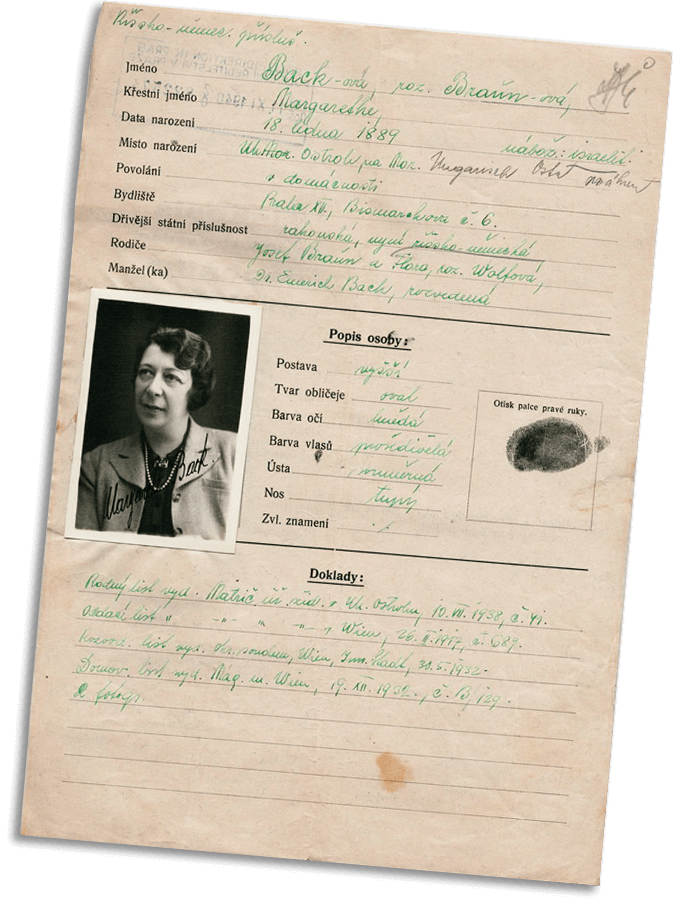 Říšsko-němec. přísluš.
Jméno Back-ová, roz. Braun-ová,
Křestní jméno Margarethe,
Data narození 18. ledna 1889 nábož.: israelit.
Místo narození Uh. Mor. Ostroh, na Mor. Ungarisch Ostra
Povolání v domácnosti
Bydliště Praha XII., Bismarckova č. 6.
Dřívější státní příslušnost rakouská, nyní říšsko-německá
Rodiče Josef Braun a Flora, roz. Wolfová,
Manžel (ka) Dr. Emerich Back, rozvedená
Popis osoby:
Postava vyšší
Tvar obličeje oval
Barva očí hnědá
Barva vlasů prošedivělá
Ústa souměrná
Nos tupý
Zvl. znamení
Otisk palce pravé ruky.
Margarethe Back.
Doklady:
Rodný list vyd. Matrič. úř. žid. v Uh. Ostrohu, 10. VII. 1938, č. 41.
Oddací list " -"- " -"- Wien, 26. II. 1917, č. 689.
Rozvod. list vyd. okr. soudem, Wien, Inn. Stadt, 30. 5. 1932.
Domov. list vyd. Mag. m. Wien, 19. XII. 1932, č. B, 129.
2 fotogr.